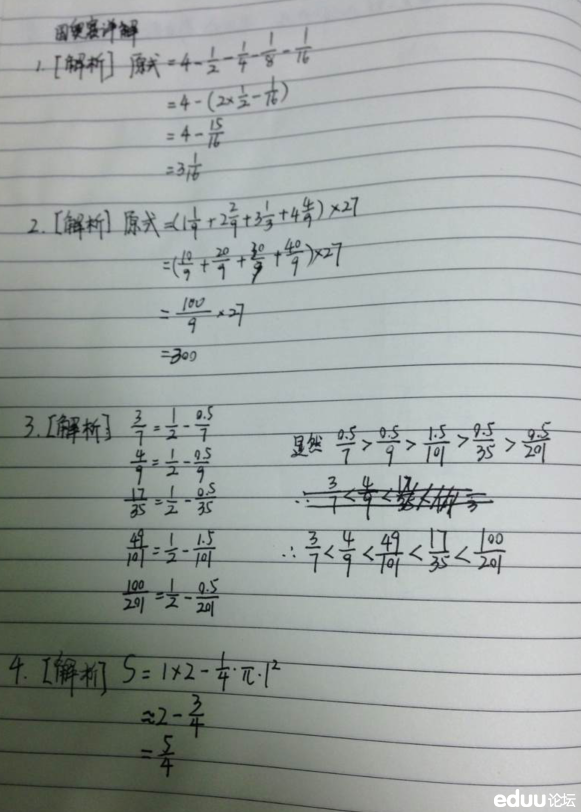 因奥赛详解
1. [解析] 原式 = 4 - 1/2 - 1/4 - 1/8 - 1/16
= 4 - (2×1/2 - 1/16)
= 4 - 15/16
= 3 1/16
2. [解析] 原式 = (1 1/9 + 2 2/9 + 3 1/3 + 4 4/9) × 27
= (10/9 + 20/9 + 30/9 + 40/9) × 27
= 100/9 × 27
= 300
3. [解析] 3/7 = 1/2 - 0.5/7
4/9 = 1/2 - 0.5/9
17/35 = 1/2 - 0.5/35
49/101 = 1/2 - 1.5/101
100/201 = 1/2 - 0.5/201
显然 0.5/7 > 0.5/9 > 1.5/101 > 0.5/35 > 0.5/201
∴ 3/7 < 4/9 < 49/101 < 17/35 < 100/201
4. [解析] S = 1×2 - 1/4·π·1²
≈ 2 - 3/4
= 5/4
eduu论坛